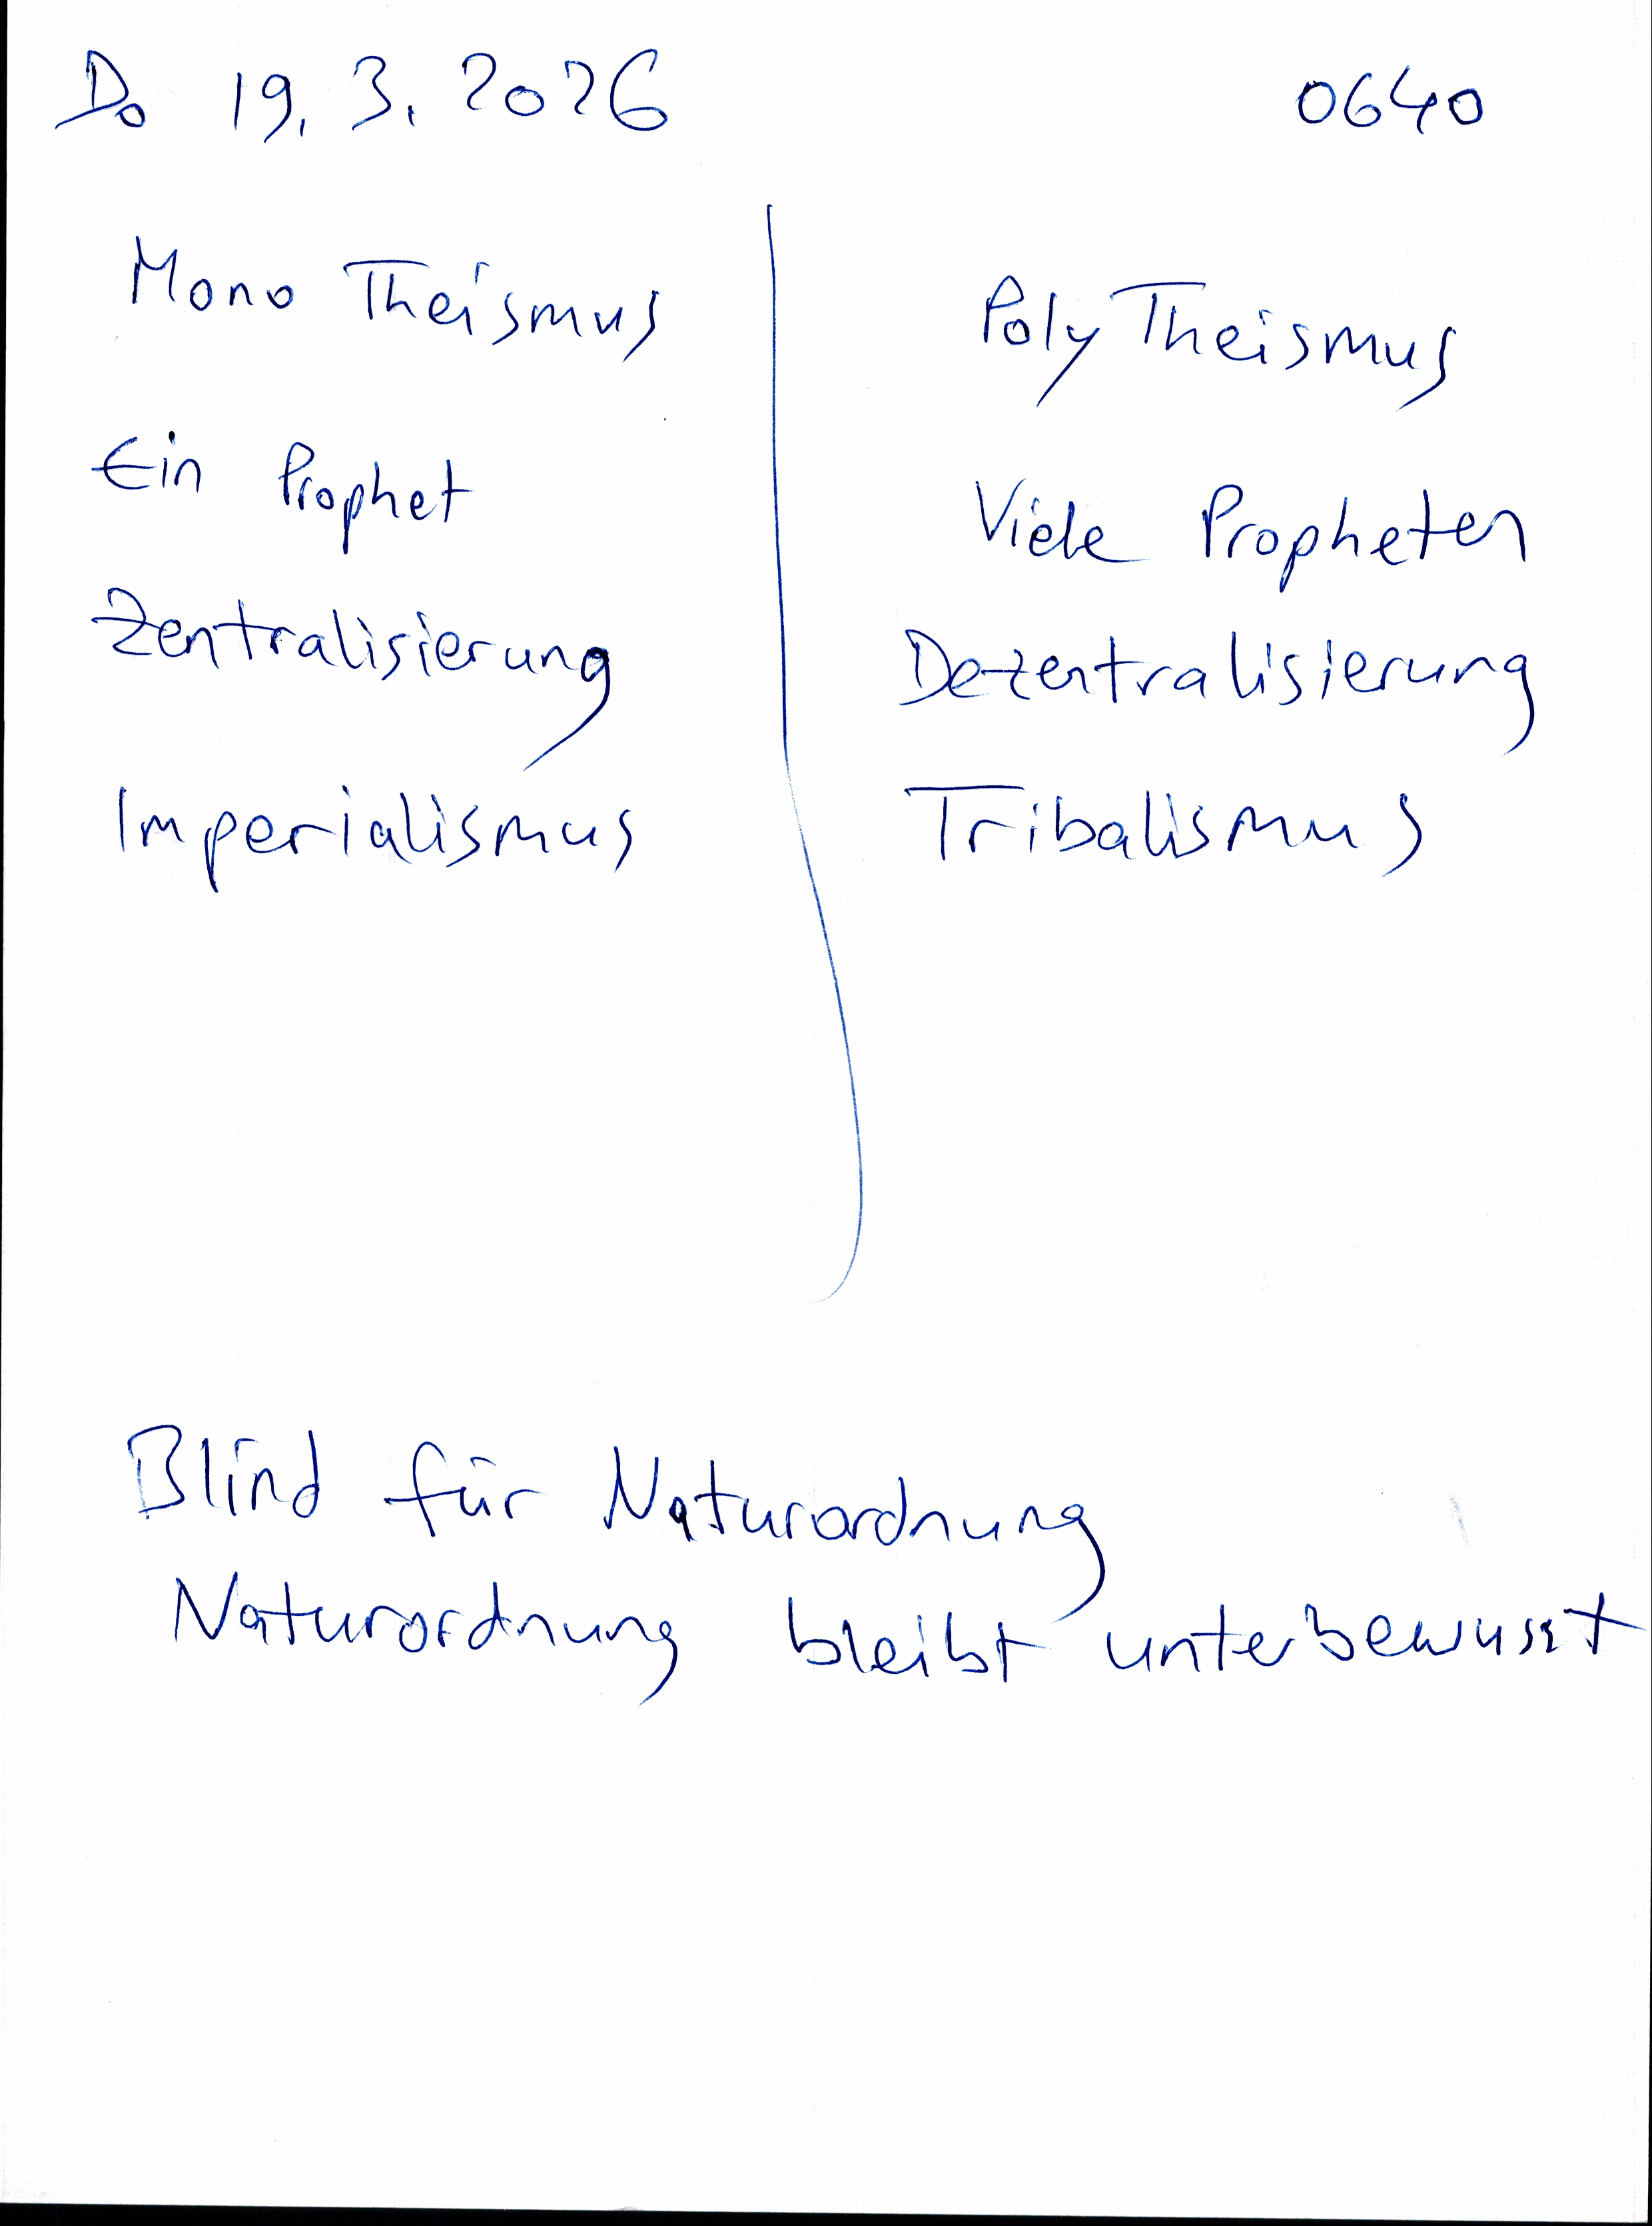 Do 19.3.2026 0640
Mono Theismus
Poly Theismus
Ein Prophet
Viele Propheten
Zentralisierung
Dezentralisierung
Imperialismus
Tribalismus
Blind für Naturordnung
Naturordnung bleibt unterbewusst